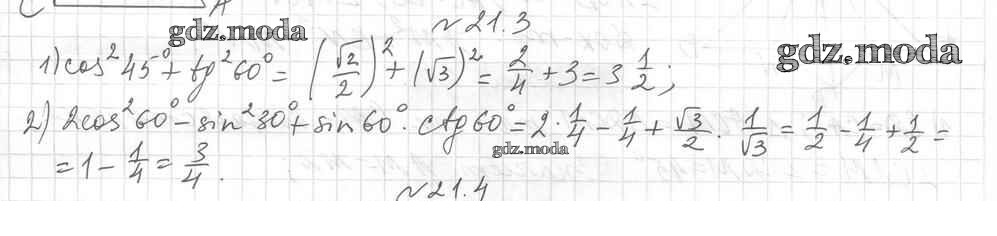 C A
№ 21.3
gdz.moda
gdz.moda
1) cos²45° + tg²60° = (√2/2)² + (√3)² = 2/4 + 3 = 3 1/2;
2) 2cos²60° - sin²30° + sin60° · ctg60° = 2 · 1/4 - 1/4 + √3/2 · 1/√3 = 1/2 - 1/4 + 1/2 =
gdz.moda
= 1 - 1/4 = 3/4.
№ 21.4